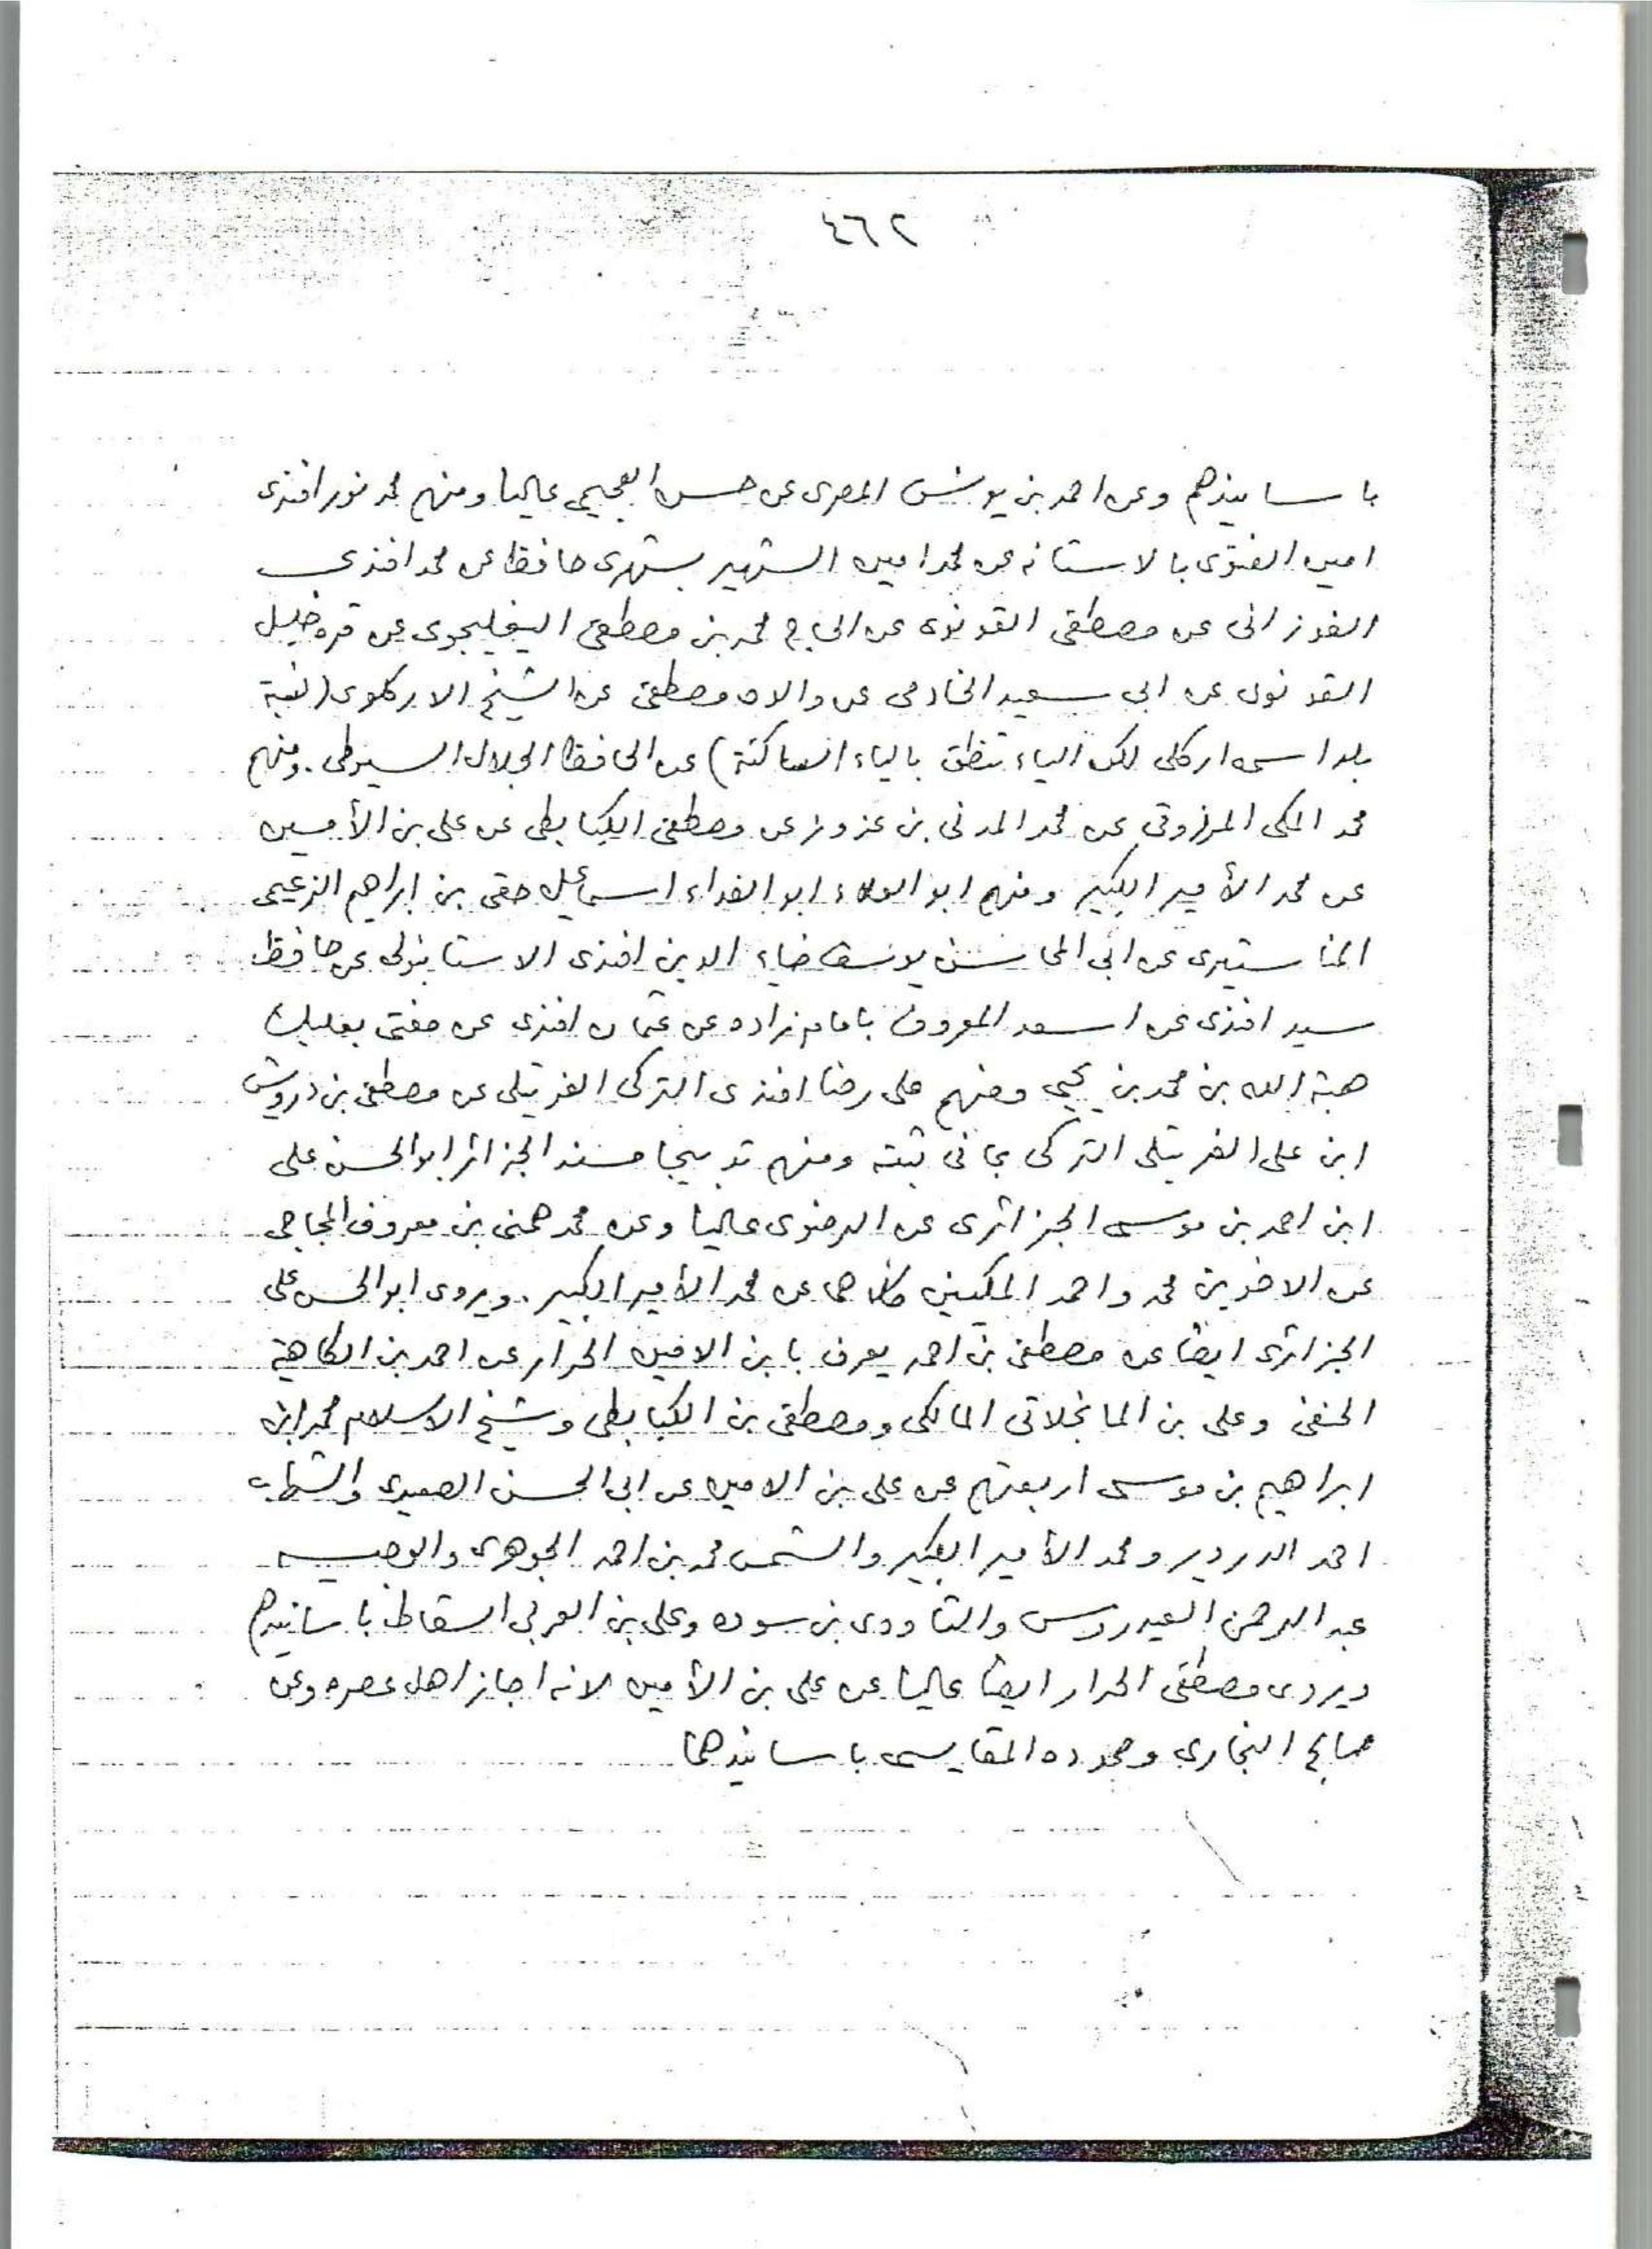 ٤٦٢
باسانيدهم وعن احمد بن يونس المصرى عن حسن العجيمى عاليا ومنهم محمد نور افندى
امين الفتوى بالاستانه عن محمد امين الشهير بشهرى حافظ عن محمد افندى
الفوزانى عن مصطفى القونوى عن الحاج محمد بن مصطفى عن قره خليل
القونوى عن ابى سعيد الخادمى عن والده مصطفى عن الشيخ الاركلوى (نسبة
بلد اسمى اركلى لكن الياء تنطق بالياء الساكنة) عن الحافظ الجلال السيوطى. ومنهم
محمد المكى المرزوقى عن محمد المدنى بن عزوز عن مصطفى الكبابطى عن على بن الأمين
عن محمد الأمير الكبير ومنهم ابو العلاء ابو الفداء اسماعيل حقى بن ابراهيم الزعيمى
المناستيرى عن ابى المحاسن يوسف ضياء الدين افندى الاستانبولى عن حافظ
سيد افندى عن اسعد المعروف بامام زاده عن عثمان افندى عن مفتى بعلبك
هبة الله بن محمد بن يحيى ومنهم على رضا افندى التركى القريتلى عن مصطفى بن درويش
ابن على القريتلى التركى بما فى ثبته ومنهم تدبيجا مسند الجزائر ابو الحسن على
ابن احمد بن موسى الجزائرى عن الرضوى عاليا وعن محمد هنى بن معروف المجاجى
عن الاخوين محمد واحمد المكيين كلاهما عن محمد الأمير الكبير. ويروى ابو الحسن على
الجزائرى ايضا عن مصطفى بن احمد يعرف بابن الامين الحرار عن احمد بن الكاهية
الحنفى وعلى بن المانجلاتى المالكى ومصطفى بن الكبابطى وشيخ الاسلام محمد ابن
ابراهيم بن موسى اربعتهم عن على بن الامين عن ابى الحسن الصعيدى والشهاب
احمد الدردير ومحمد الأمير الكبير والشمس محمد بن احمد الجوهرى والوجيه
عبد الرحمن العيدروس والتاودى بن سوده وعلى بن العربى السقاط باسانيدهم
ويروى مصطفى الحرار ايضا عاليا عن على بن الأمين لانه اجاز اهل عصره وعن
صالح البخارى وحموده المقايسى باسانيدهما